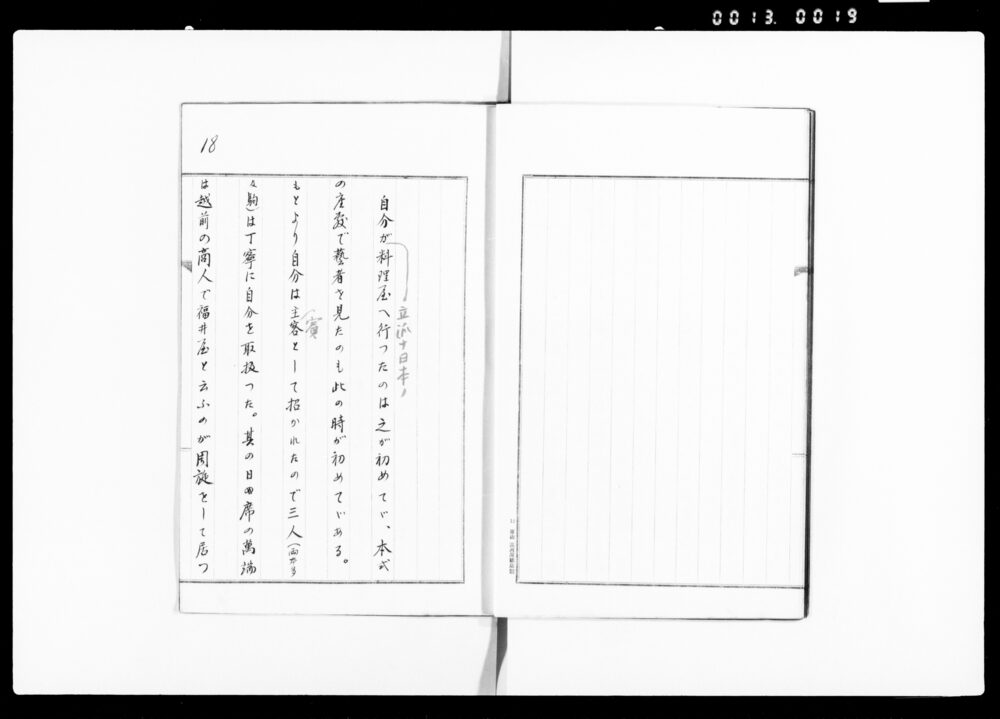 0013 0019
18
自分が料理屋へ行つたのは之が初めてで、本式
立派ナ日本ノ
の座敷で藝者を見たのも此の時が初めてである。
もとより自分は主客として招かれたので三人
賓
駒)は丁寧に自分を取扱つた。其の日 席の萬端
は越前の商人で福井屋と云ふのが周旋をして居つ